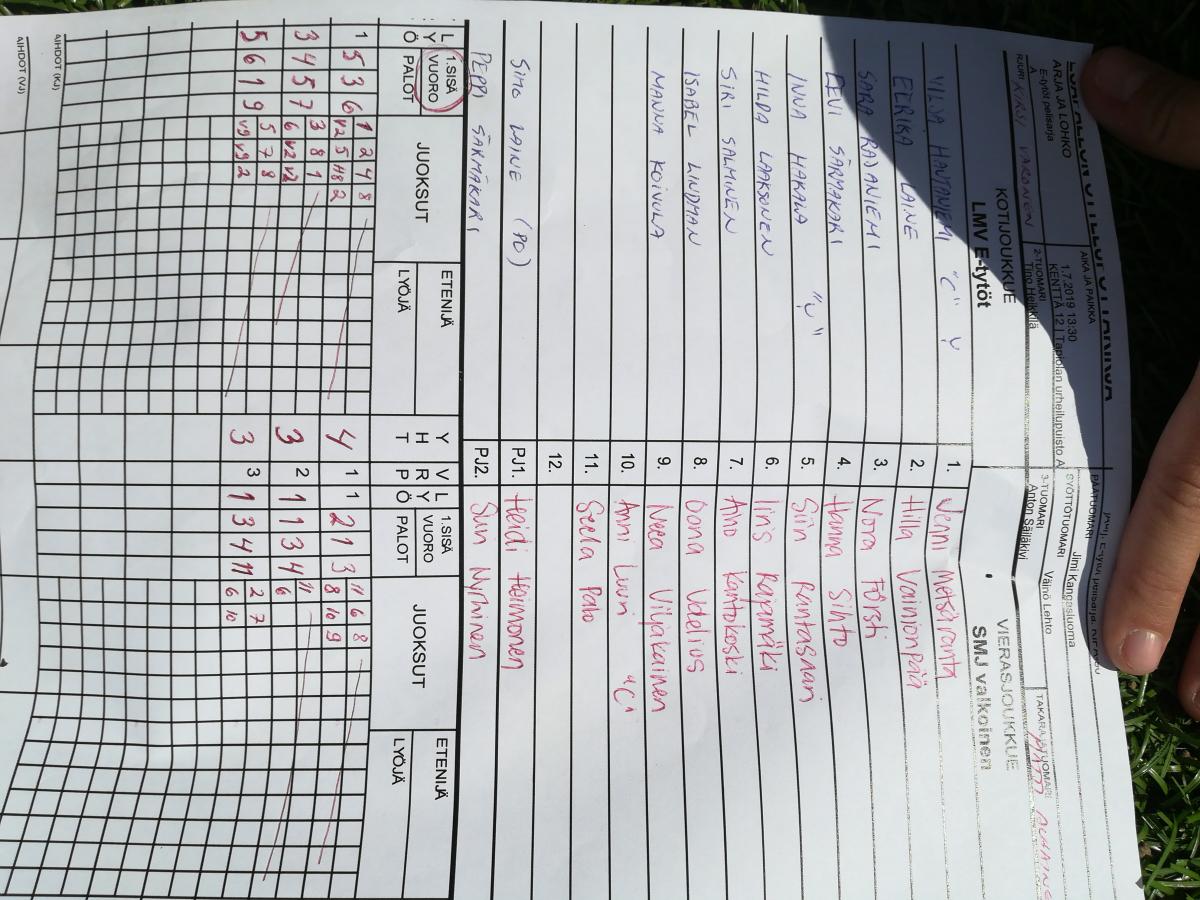 ARJA JA LOHKO
E-tytöt pelisarja
A
AIKA JA PAIKKA
1.7.2019 13:30
KENTTÄ 12 | Tapiolan urheilupuisto A
PÄÄTUOMARI
SYÖTTÖTUOMARI
Jimi Kangasluoma
2-TUOMARI
Tino Heikkilä
3-TUOMARI
Anton Säiläkivi
Väinö Lehto
TAKARAJATUOMARI
KOTIJOUKKUE
LMV E-tytöt
VIERASJOUKKUE
SMJ valkoinen
VILJA HAUTANIEMI "C" 1. Venni Metsäranta
EERIKA LAINE 2. Hilla Vainionpää
SARA RAJANIEMI 3. Nora Försti
EEVI SÄRMÄKARI 4. Hanna Sihto
INNA HAKALA 5. Siiri Rantasaari
HILDA LAAKSONEN 6. Iiris Rajamäki
SIRI SALMINEN 7. Aino Kantokoski
ISABEL LINDMAN 8. Oona Vdelius
MANNA KOIVULA 9. Neea Viljakainen
10. Anni Luuri "C"
11. Seela Palo
12.
SIMO LAINE (PO) PJ1. Heidi Heimonen
PEPPI SÄRMÄKARI PJ2. Suvi Nyrhinen
L Y Ö 1.SISÄ VUORO PALOT JUOKSUT ETENIJÄ LYÖJÄ Y H T V R P L Y Ö 1.SISÄ VUORO PALOT JUOKSUT ETENIJÄ LYÖJÄ
1 5 3 6 1 2 4 8 4 1 1 2 1 3 11 6 8
V2 5 H8 2 8 10 9
3 4 5 7 3 8 1 3 2 1 1 3 4 11
6 V2 V2 6
5 6 1 9 5 7 8 3 3 1 3 4 11 2 7
V9 V9 2 6 10
AIHDOT (KJ)
AIHDOT (VJ)